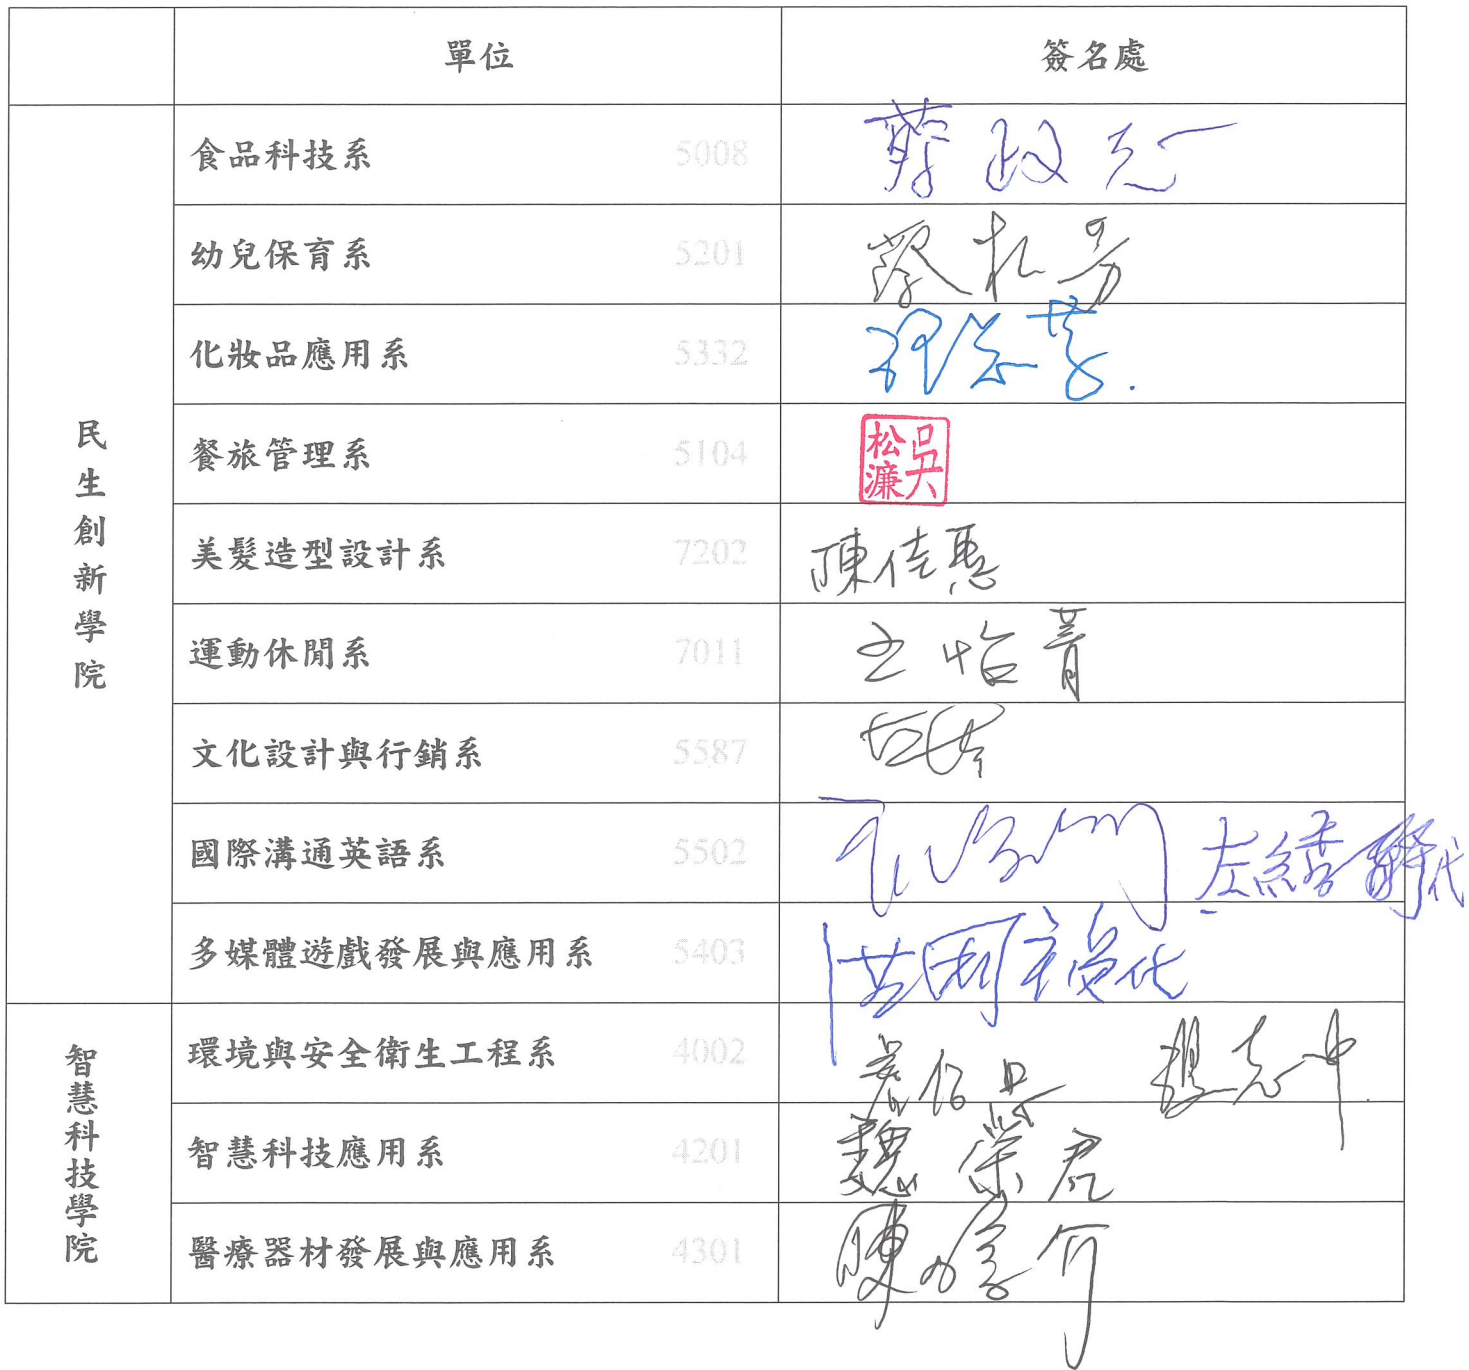 單位 簽名處
民生創新學院
食品科技系 5008 蔡政志
幼兒保育系 5201 蔡松芳
化妝品應用系 5332
餐旅管理系 5104 吳松濂
美髮造型設計系 7202 陳佳惠
運動休閒系 7011 王怡菁
文化設計與行銷系 5587
國際溝通英語系 5502 代
多媒體遊戲發展與應用系 5403 代
智慧科技學院
環境與安全衛生工程系 4002 楊志中
智慧科技應用系 4201 魏榮君
醫療器材發展與應用系 4301 陳